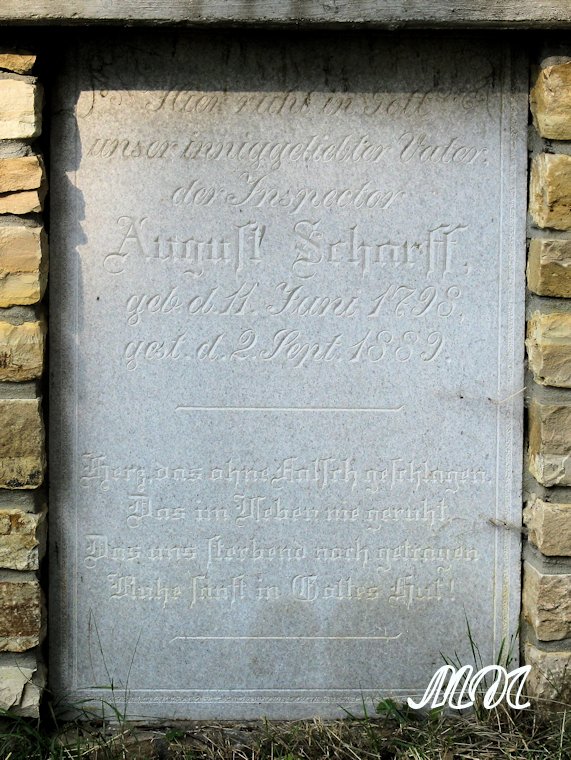 Hier ruht in Gott
unser inniggeliebter Vater,
der Inspector
August Scharff,
geb. d. 11. Juni 1798,
gest. d. 2. Sept. 1889.
Herz, das ohne Falsch geschlagen,
Das im Leben nie geruht,
Das uns sterbend noch getragen
Ruhe sanft in Gottes Hut!